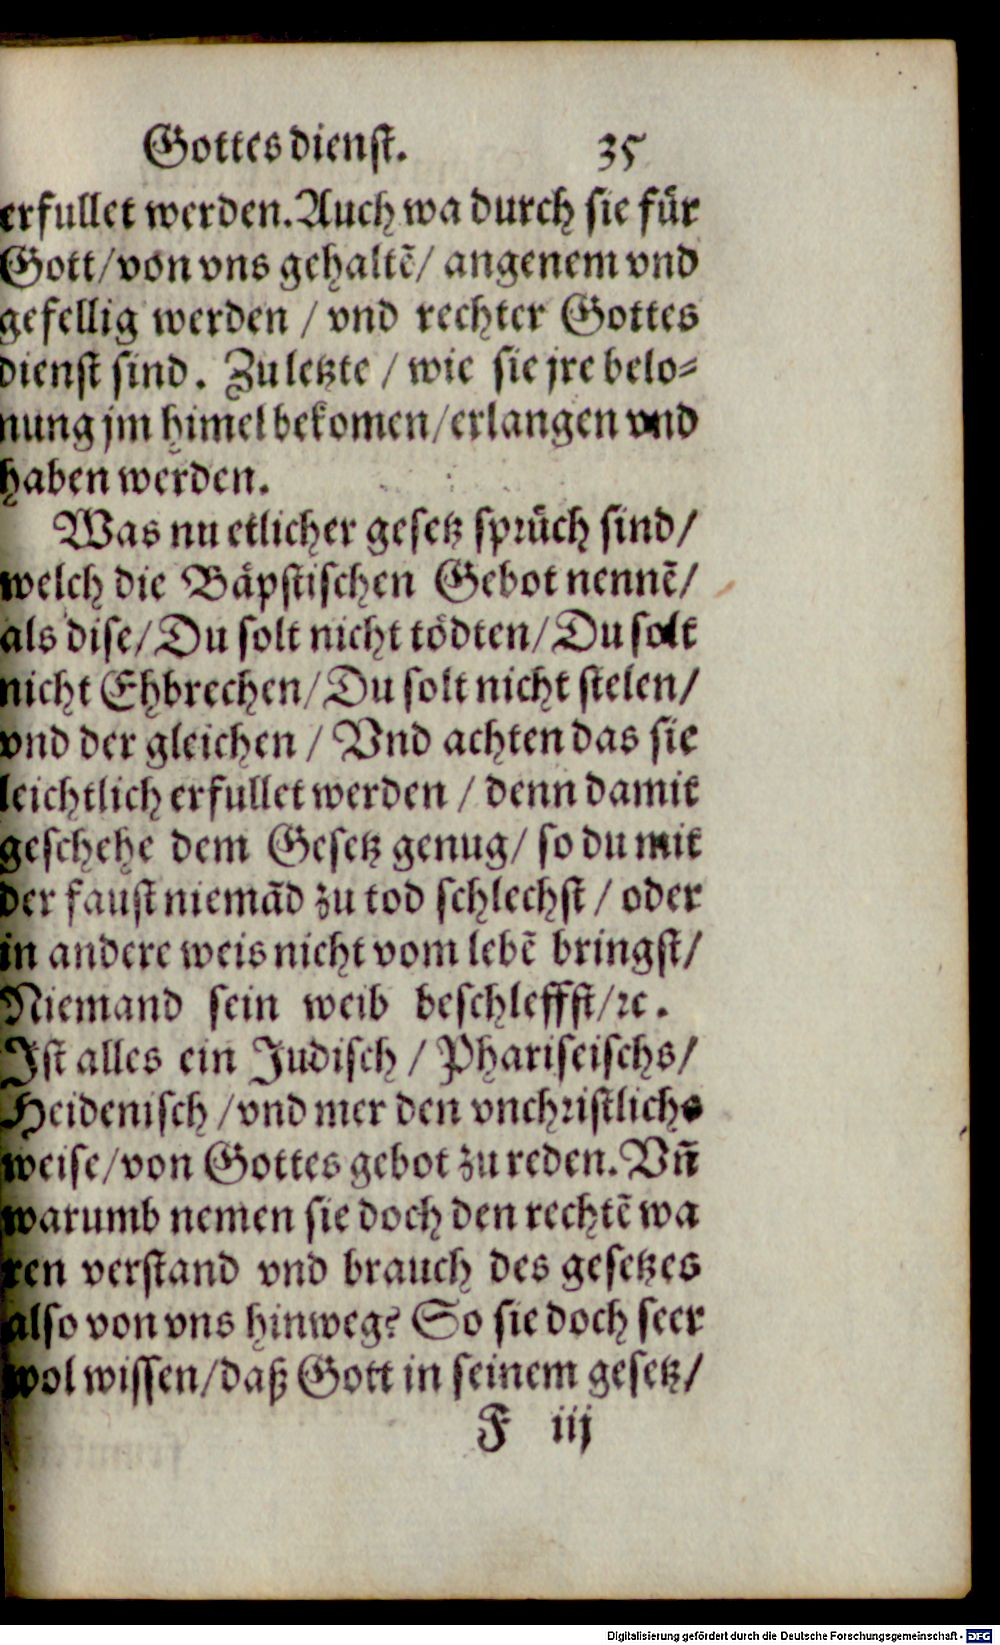 Gottes dienst. 35
erfullet werden. Auch wa durch sie für
Gott/ von vns gehaltē/ angenem vnd
gefellig werden / vnd rechter Gottes
dienst sind. Zu letzte / wie sie jre belo⸗
nung jm himel bekomen/ erlangen vnd
haben werden.
Was nu etlicher gesetz sprüch sind/
welch die Bäpstischen Gebot nennē/
als dise/ Du solt nicht tödten/ Du solt
nicht Ehbrechen/ Du solt nicht stelen/
vnd der gleichen / Vnd achten das sie
leichtlich erfullet werden / denn damit
geschehe dem Gesetz genug/ so du mit
der faust niemād zu tod schlechst / oder
in andere weis nicht vom lebē bringst/
Niemand sein weib beschleffst/ ꝛc.
Ist alles ein Judisch / Phariseischs/
Heidenisch / vnd mer den vnchristlichs
weise/ von Gottes gebot zu reden. Vn̄
warumb nemen sie doch den rechtē wa
ren verstand vnd brauch des gesetzes
also von vns hinweg? So sie doch seer
wol wissen/ daß Gott in seinem gesetz/
F iij
Digitalisierung gefördert durch die Deutsche Forschungsgemeinschaft - DFG